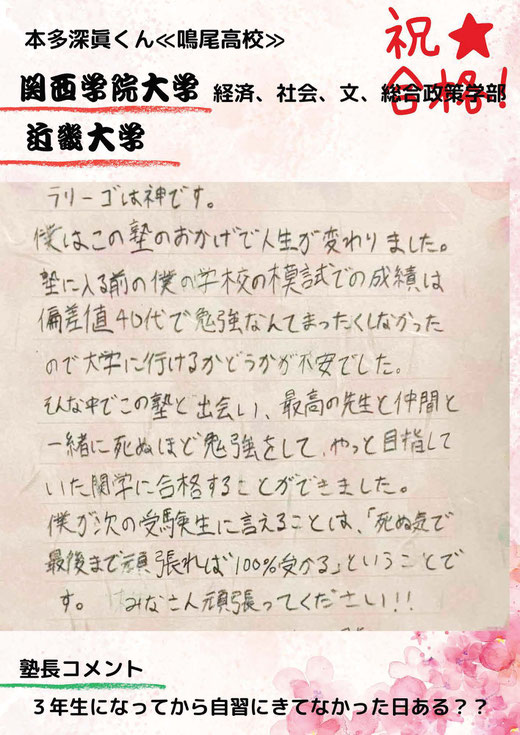 本多深眞くん≪鳴尾高校≫
祝★
合格!
関西学院大学 経済、社会、文、総合政策学部
近畿大学
ラリーゴは神です。
僕はこの塾のおかげで人生が変わりました。
塾に入る前の僕の学校の模試での成績は
偏差値40代で勉強なんてまったくしなかった
ので大学に行けるかどうかが不安でした。
そんな中でこの塾と出会い、最高の先生と仲間と
一緒に死ぬほど勉強をして、やっと目指して
いた関学に合格することができました。
僕が次の受験生に言えることは、「死ぬ気で
最後まで頑張れば100%受かる」ということで
す。 みなさん頑張ってください!!
塾長コメント
３年生になってから自習にきてなかった日ある？？